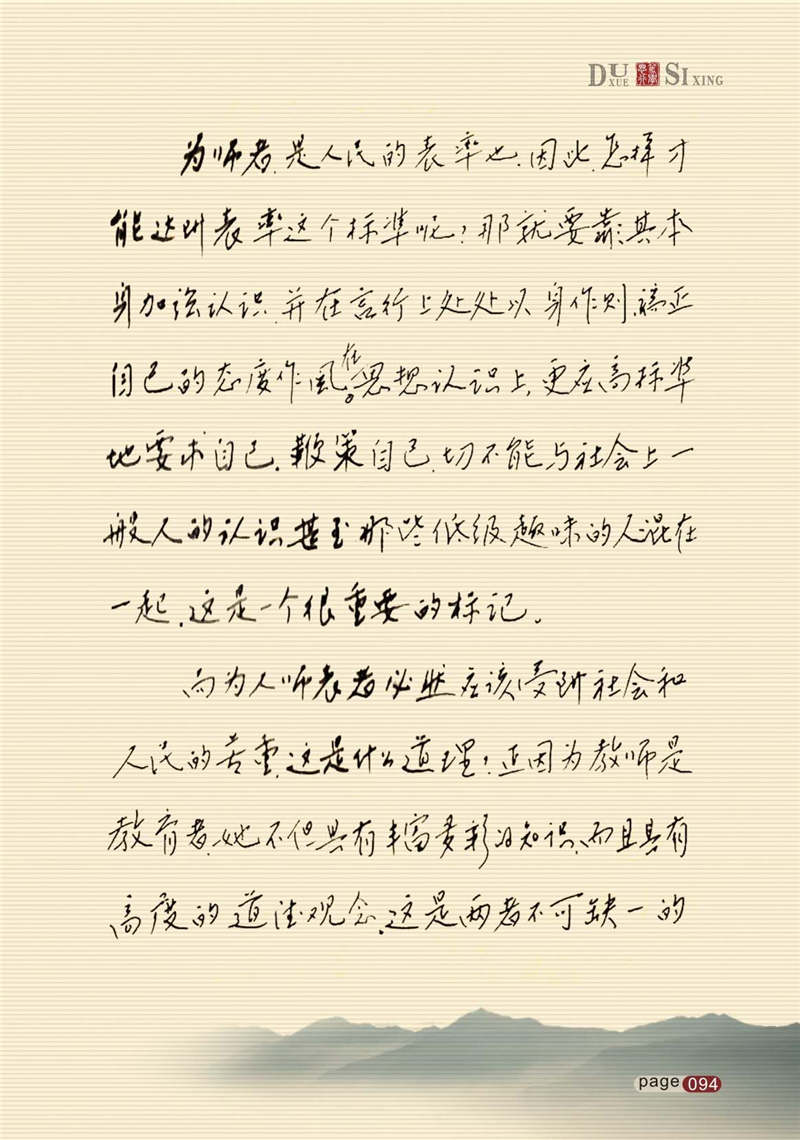 DU XUE SI XING
为师者,是人民的表率也,因此,怎样才
能达时表率这个标准呢?那就要靠其本
身加强认识,并在言行上处处以身作则,端正
自己的态度作风。在思想认识上,更应高标准
地要求自己,鞭策自己,切不能与社会上一
般人的认识甚至那些低级趣味的人混在
一起,这是一个很重要的标记。
而为人师表者必然应该受到社会和
人民的尊重,这是什么道理?正因为教师是
教育者,她不但具有丰富多彩的知识,而且具有
高度的道德观念,这是两者不可缺一的
page 094